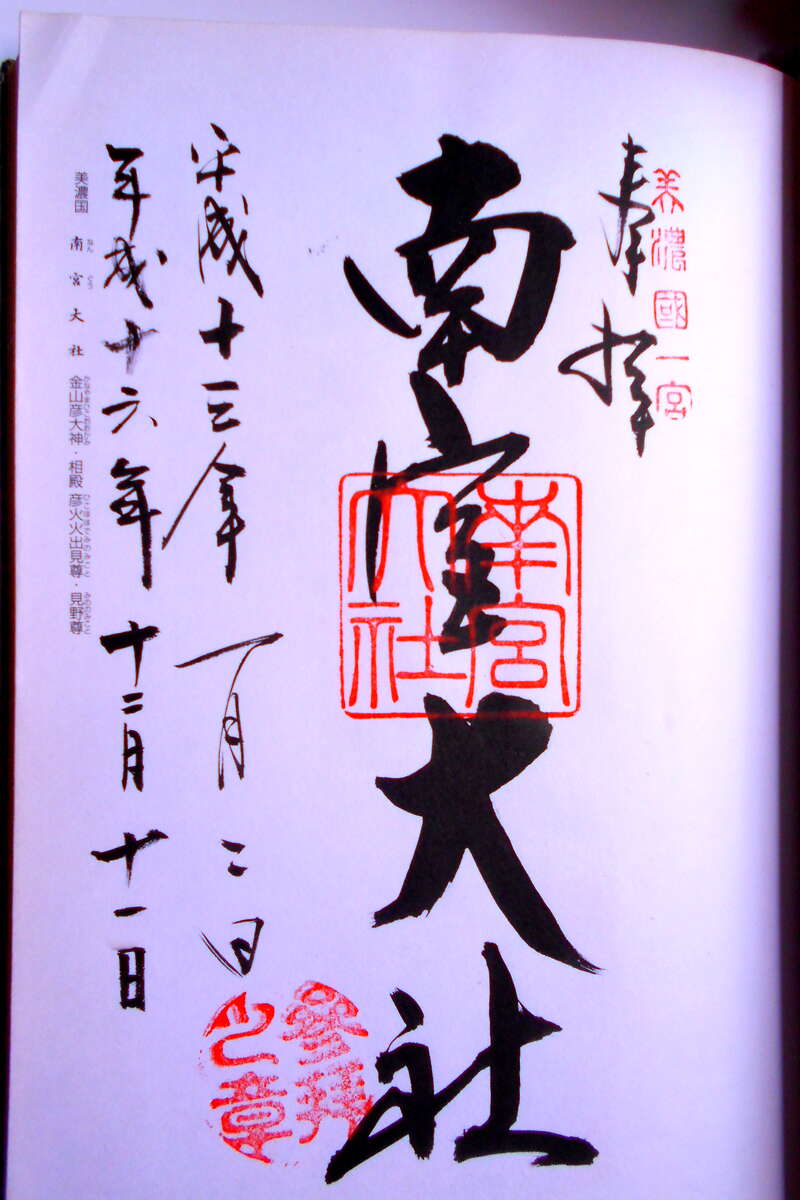 美濃國一宮
奉拝
南宮大社
南宮
大社
平成十三年一月二日
參拜
之章
平成十六年十二月十一日
美濃国 南宮大社 金山彦大神・相殿 彦火火出見尊・見野尊